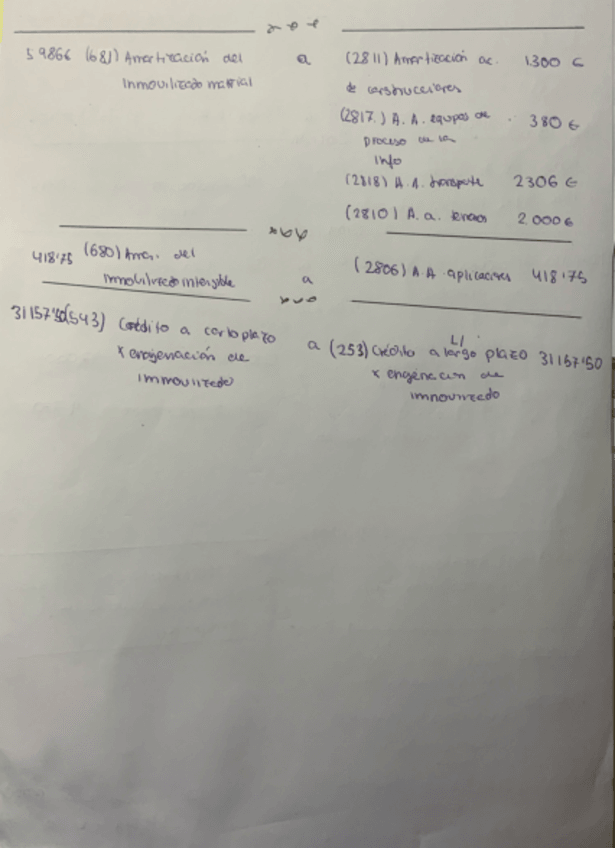 59866 (681) Amortización del a (2811) Amortización ac. 1300 €
Inmovilizado material de construcciones
(2817.) A. A. equipos de . 380 €
proceso de la
info
(2818) A. A. transporte 2306 €
(2810) A. a. 2000 €
418'75 (680) Amo. del
inmovilizado intangible a (2806) A. A. aplicaciones 418'75
31157'50 (543) Crédito a corto plazo a (253) Crédito a largo plazo 31157'50
L/
x enajenación de x enajenación de
immovilizado inmovilizado